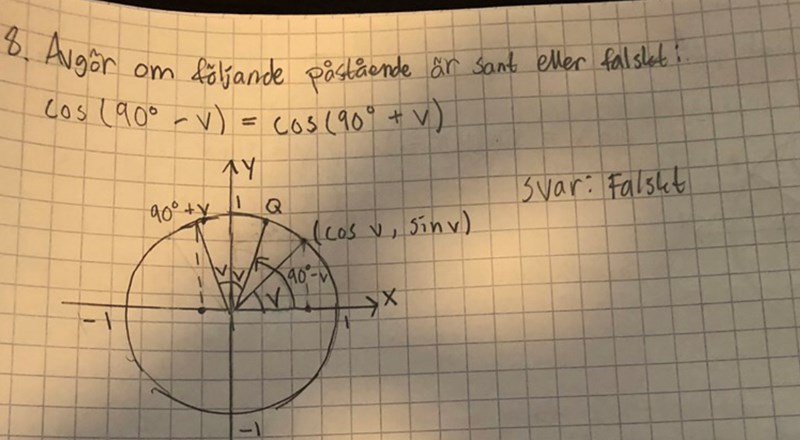 8. Avgör om följande påstående är sant eller falskt:
cos (90° - v) = cos(90° + v)
svar: Falskt
Y
90° + v 1 Q
(cos v, sin v)
v v 90°-v
v X
-1 1
-1